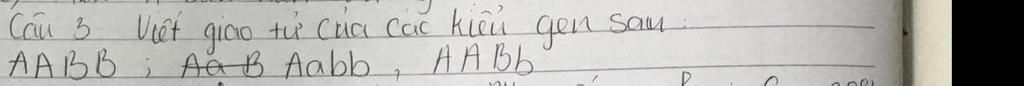 Câu 3. Viết giao tử của các kiểu gen sau:
AABB; Aabb, AABb